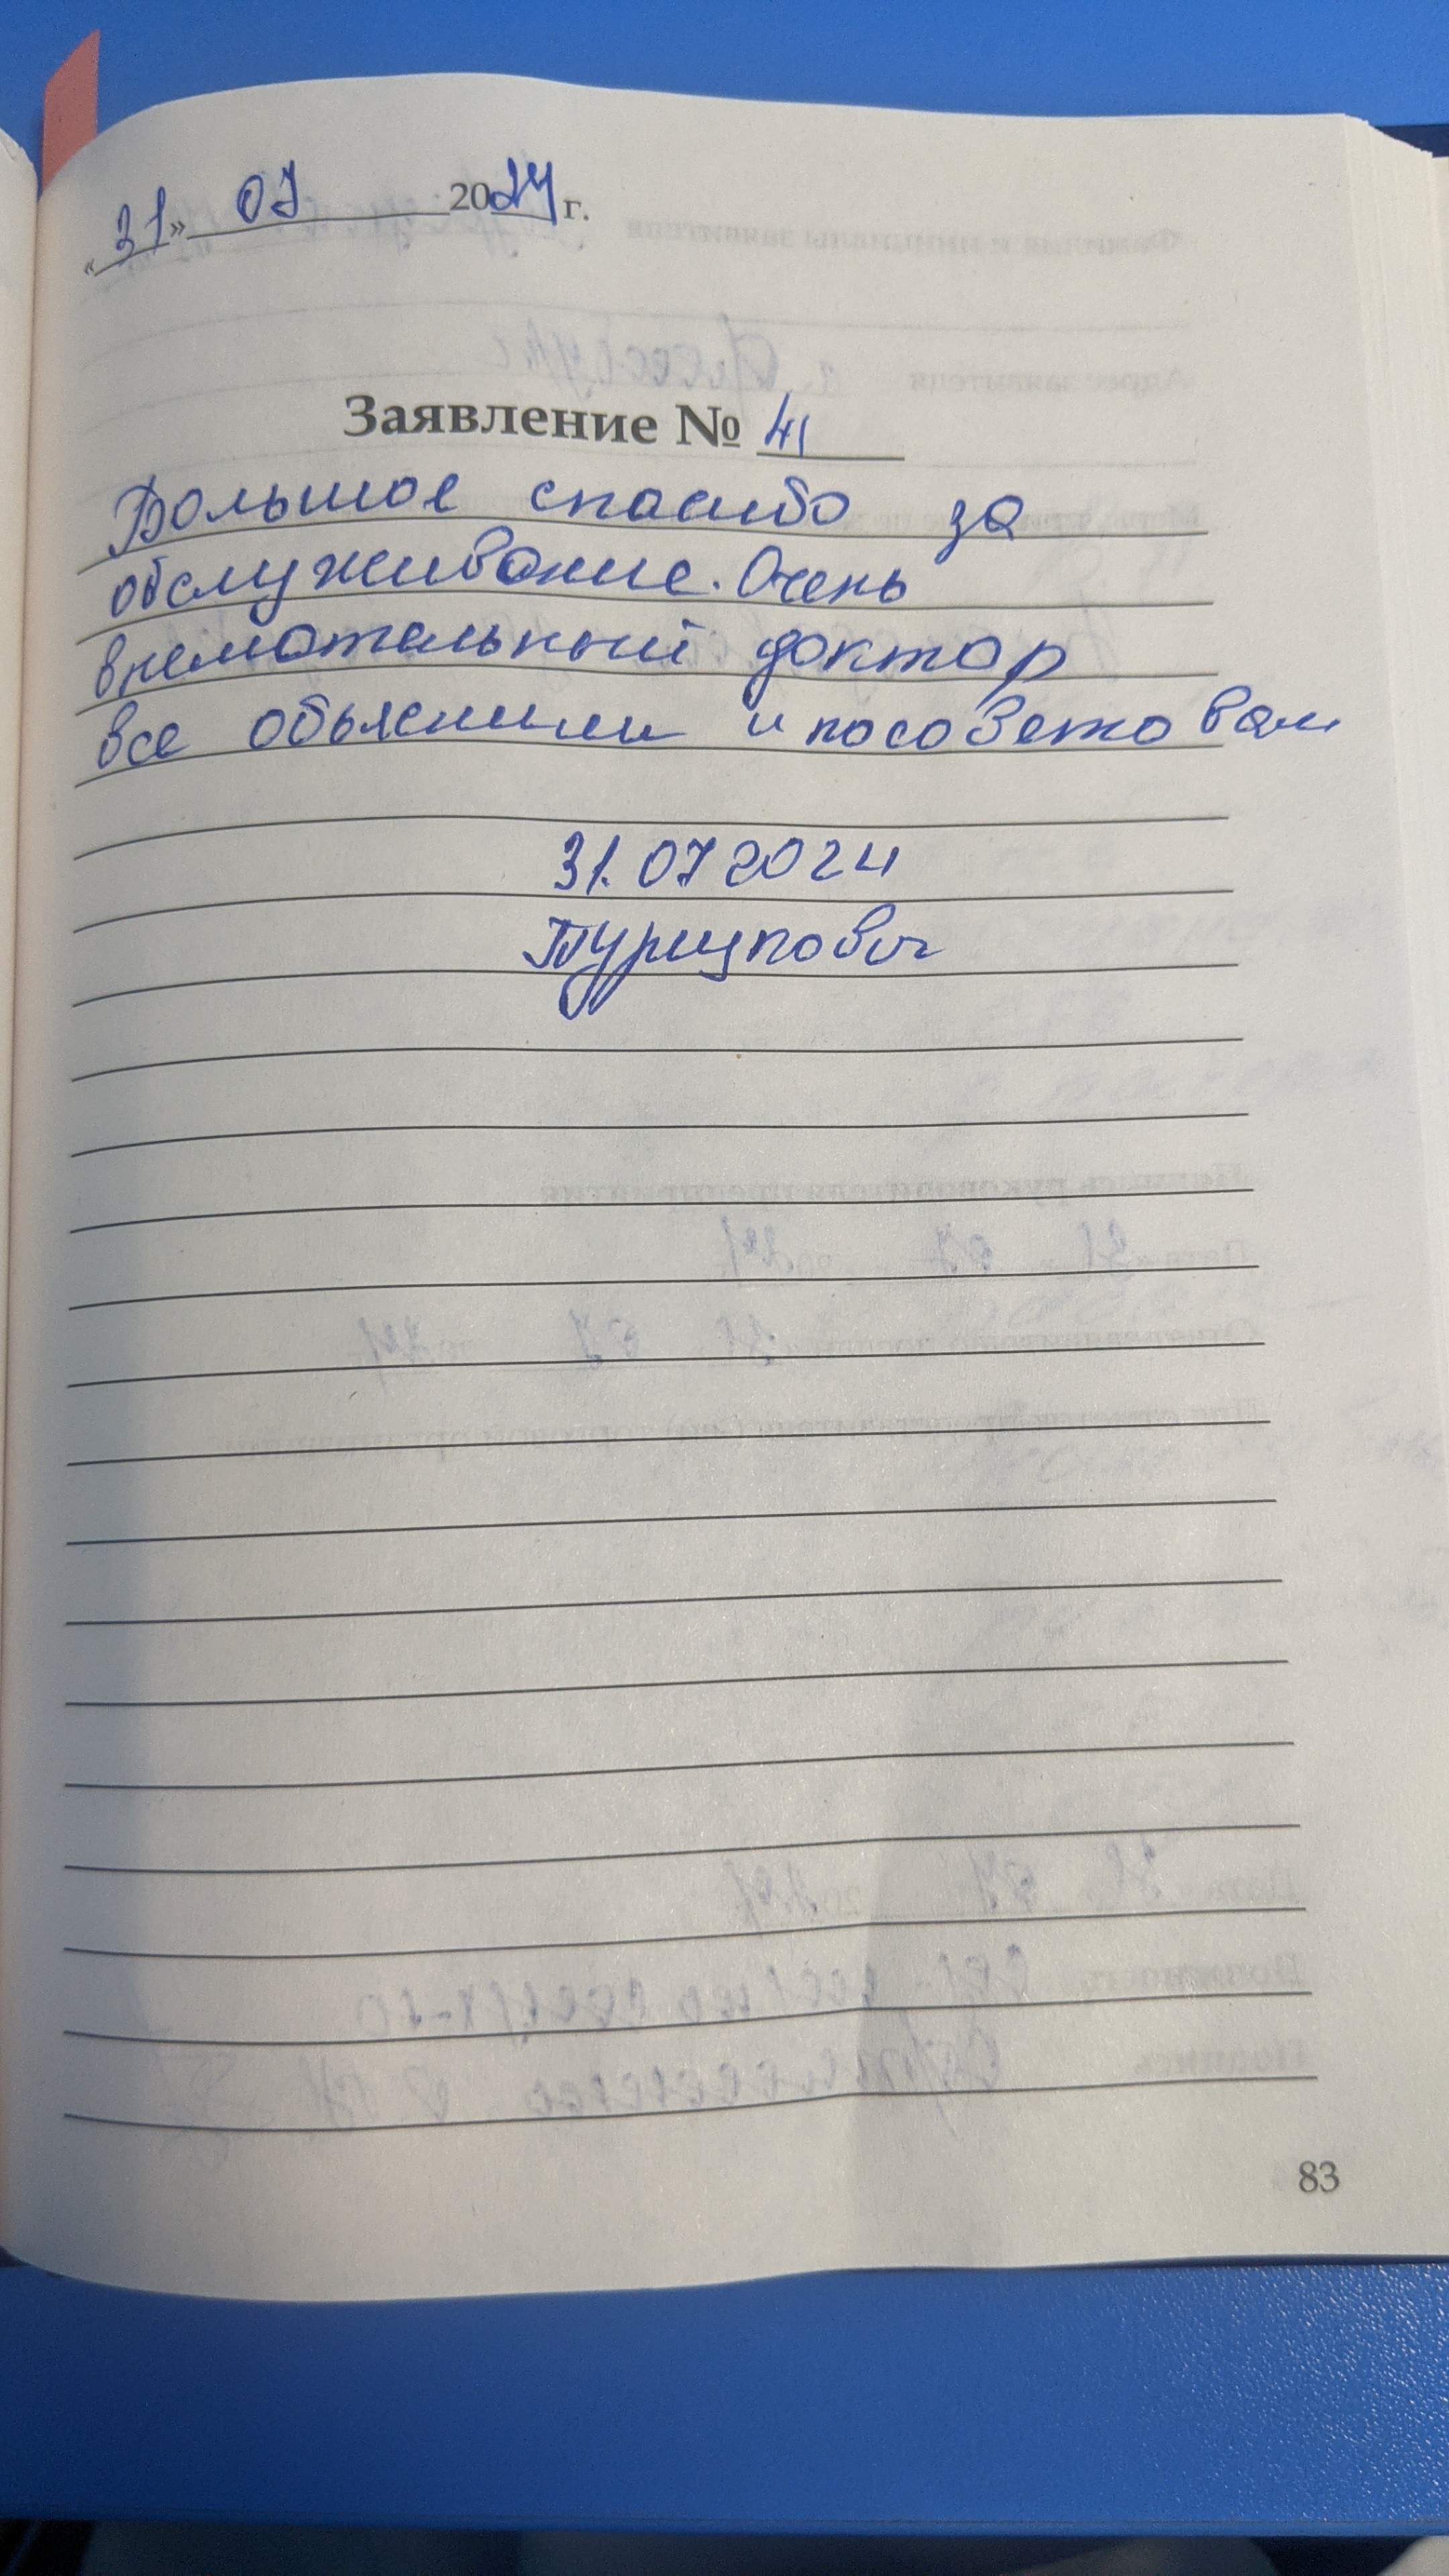 «31» 07 2024 г.
Заявление № 41
Большое спасибо за
обслуживание. Очень
внемательный доктор
все обьяснили и посоветовали
31.07 2024
83